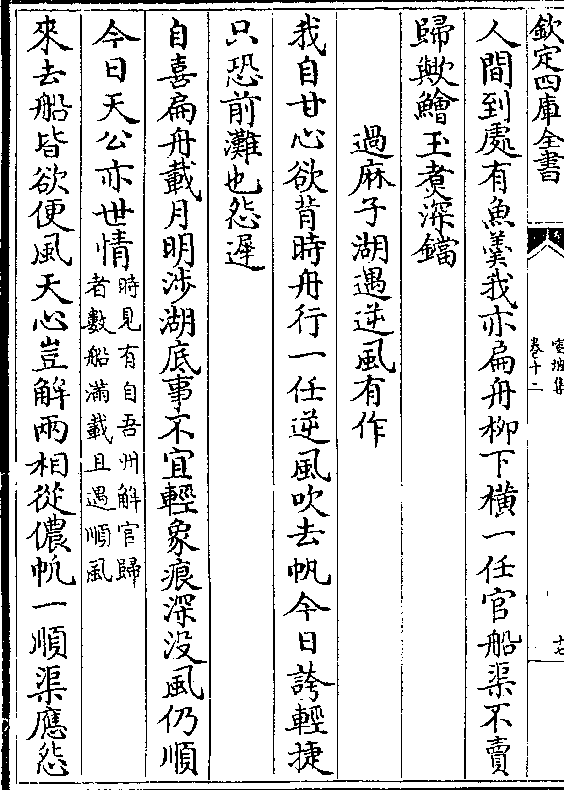 欽定四庫全書
卷十二
人間到處有魚羮我亦扁舟柳下横一任官船渠不賣
歸歟鱠玉煑深鐺
過麻子湖遇逆風有作
我自甘心欲背時舟行一任逆風吹去帆今日誇輕捷
只恐前灘也怨遲
自喜扁舟載月明涉湖底事不宜輕象痕深没風仍順
今日天公亦世情時見有自吾州解官歸
者數船滿載且遇順風
來去船皆欲便風天心豈解兩相從儂帆一順渠應怨